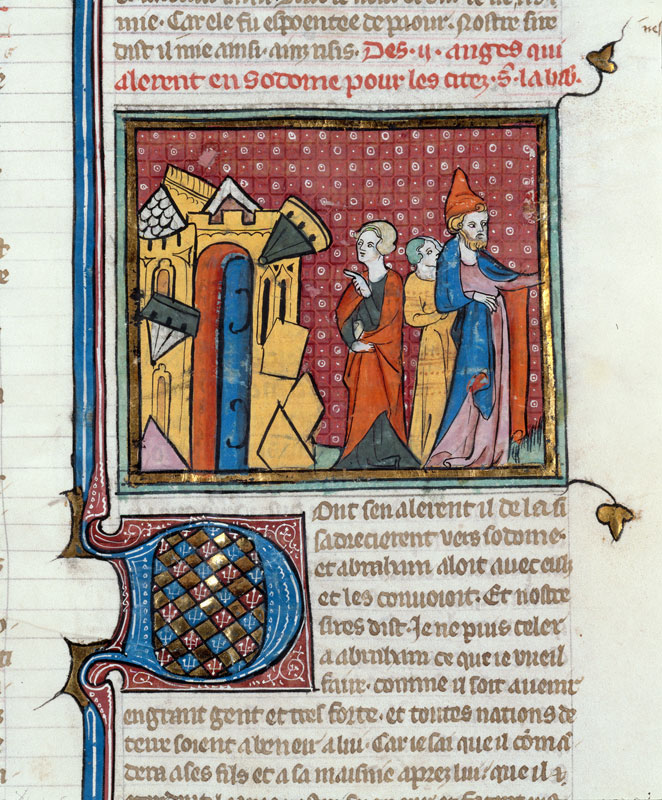 mie. Car ele fu espoentee de paour. Nostre sire
dist il mie ainsi. ains risis. Des .ii. anges qui
alerent en Sodome pour les citez. S. la bib.
Dont sen alerent il de la si
sadrecierent vers sodome.
et abraham aloit auec eus
et les conuoioit. Et nostre
sires dist. Je ne puis celer
a abraham ce que ie vueil
faire. comme il soit auenir
en grant gent et tres forte. et toutes nations de
terre soient a beneir a lui. Car ie sai que il coma
dera a ses fils et a sa maisnie aprez lui. que il